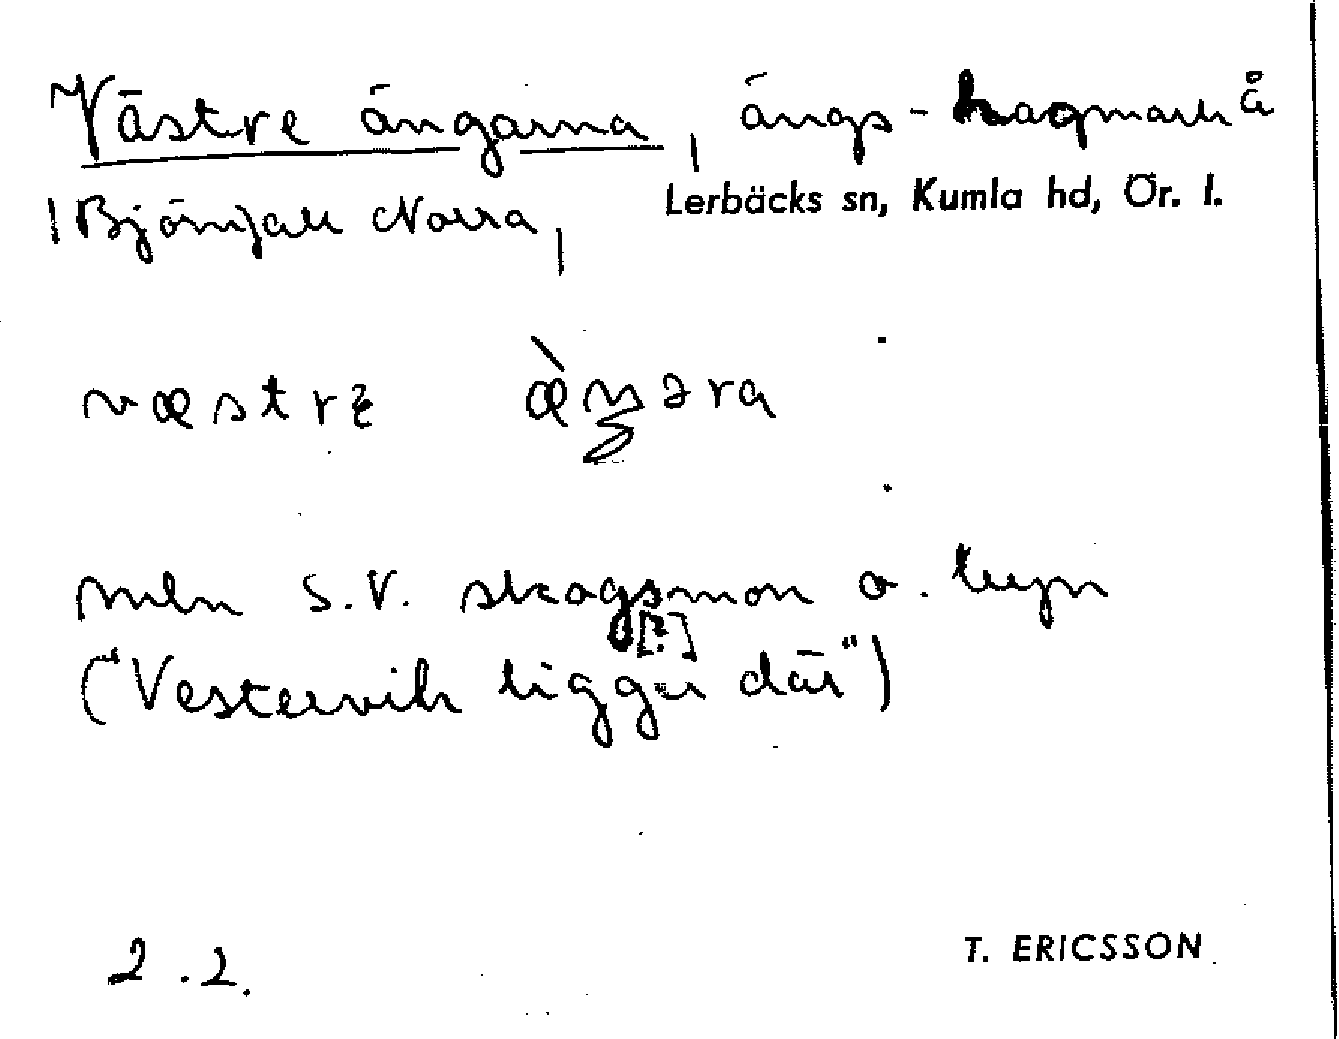 Västre ängarna, ängs-hagmark å
Lerbäcks sn, Kumla hd, Ör. l.
Björnfall Norra,
væstrə æ̀ŋəra
mln S.V. skogsmon o.
[?]
("Vestervik ligger där")
2.2.
T. ERICSSON